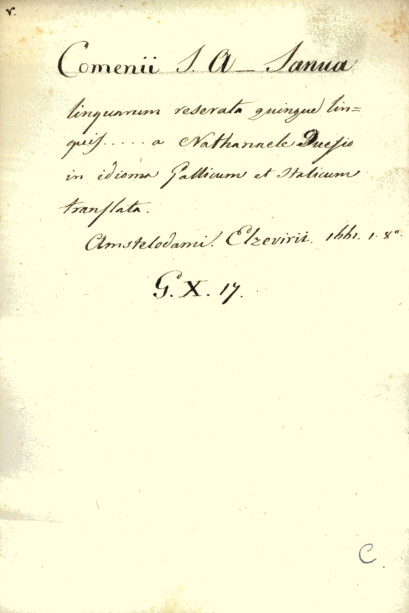 v.
Comenii J. A – Janua
linguarum reserata quinque lin=
quis..... a Nathannele Duesio
in idioma Gallicum et Italicum
translata.
Amstelodami. Elzevirii. 1661. 1. 8°.
G. X. 17.
C